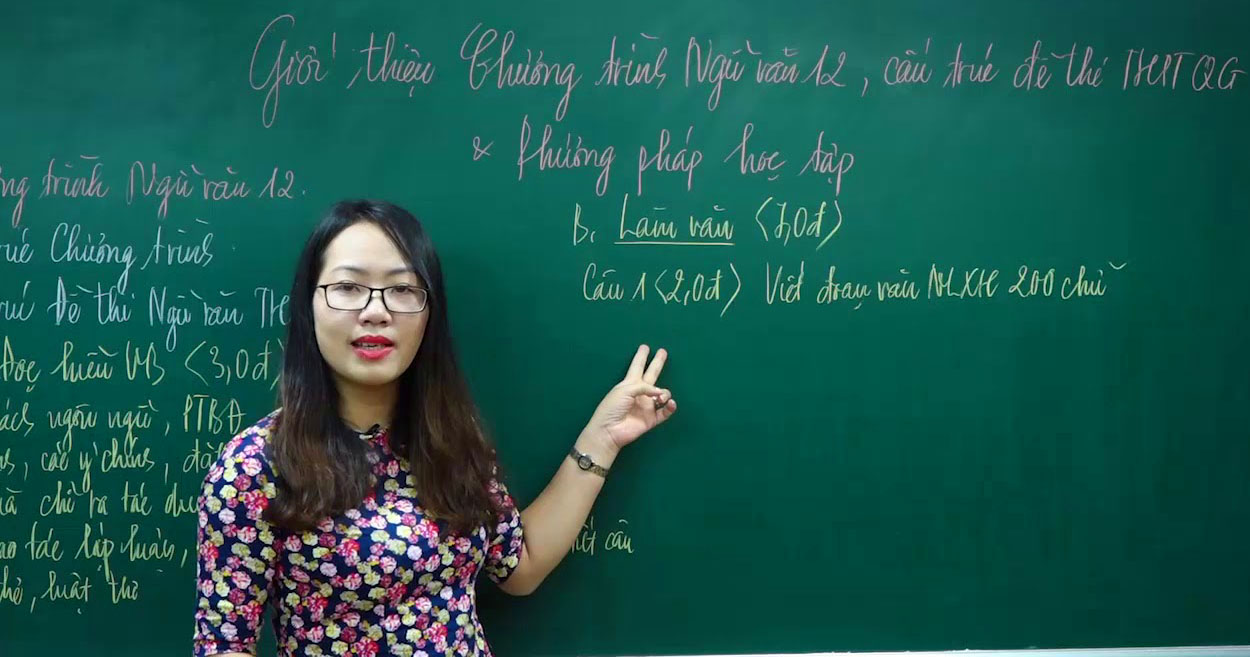 Giới thiệu Chương trình Ngữ văn 12, cấu trúc đề thi THPTQG
& Phương pháp học tập
ng trình Ngữ văn 12.
rúc Chương trình
rúc Đề thi Ngữ văn TH
Đọc hiểu VB <3,0đ>
ách ngôn ngữ, PTBĐ
, các ý chính,
chỉ ra tác dụ
ao tác lập luận,
luật thơ
B, Làm văn <7,0đ>
Câu 1 <2,0đ> Viết đoạn văn NLXH 200 chữ
câu